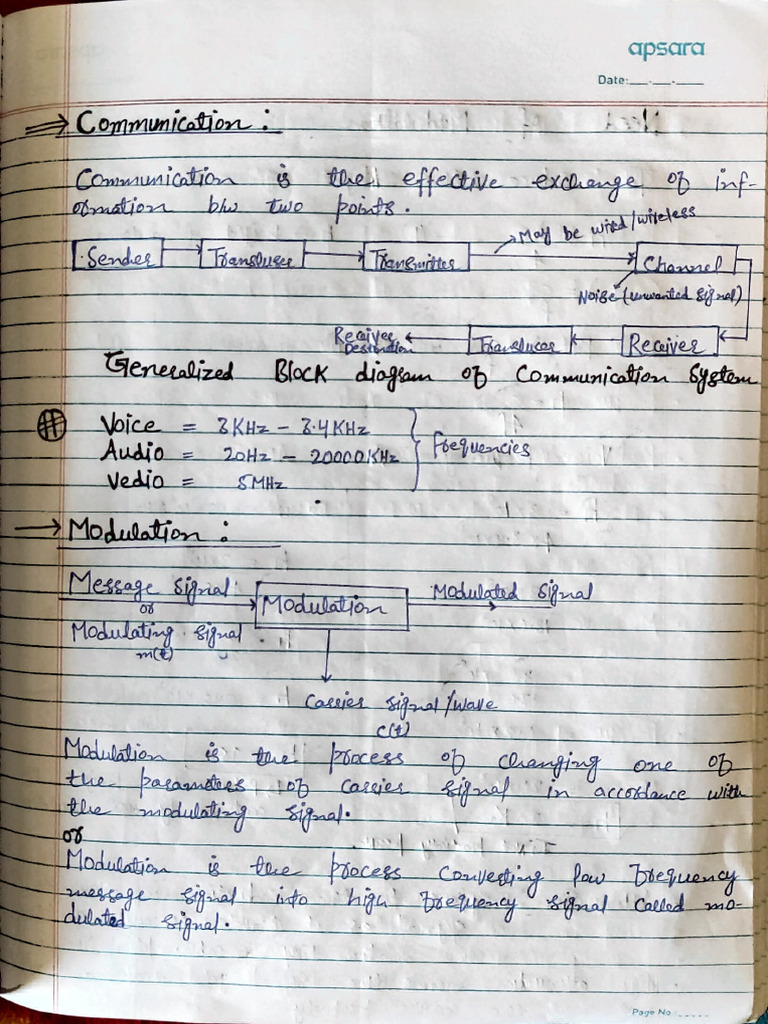 apsara
Date:__.__.____
⇒ Communication :
Communication is the effective exchange of inf-
ormation b/w two points.
May be wired/wireless
Sender
Transducer
Transmitter
Channel
Noise (unwanted signal)
Receiver
Destination
Transducer
Receiver
Generalized Block diagram of Communication System
# Voice = 3KHz - 3.4KHz
Audio = 20Hz - 20000KHz
Vedio = 5MHz
Frequencies
→ Modulation :
Message Signal
or
Modulating Signal
m(t)
Modulation
Modulated Signal
Carrier Signal/wave
c(t)
Modulation is the process of changing one of
the parameters of carrier signal in accordance with
the modulating signal.
or
Modulation is the process converting low frequency
message signal into high frequency signal called mo-
dulated signal.
Page No.: